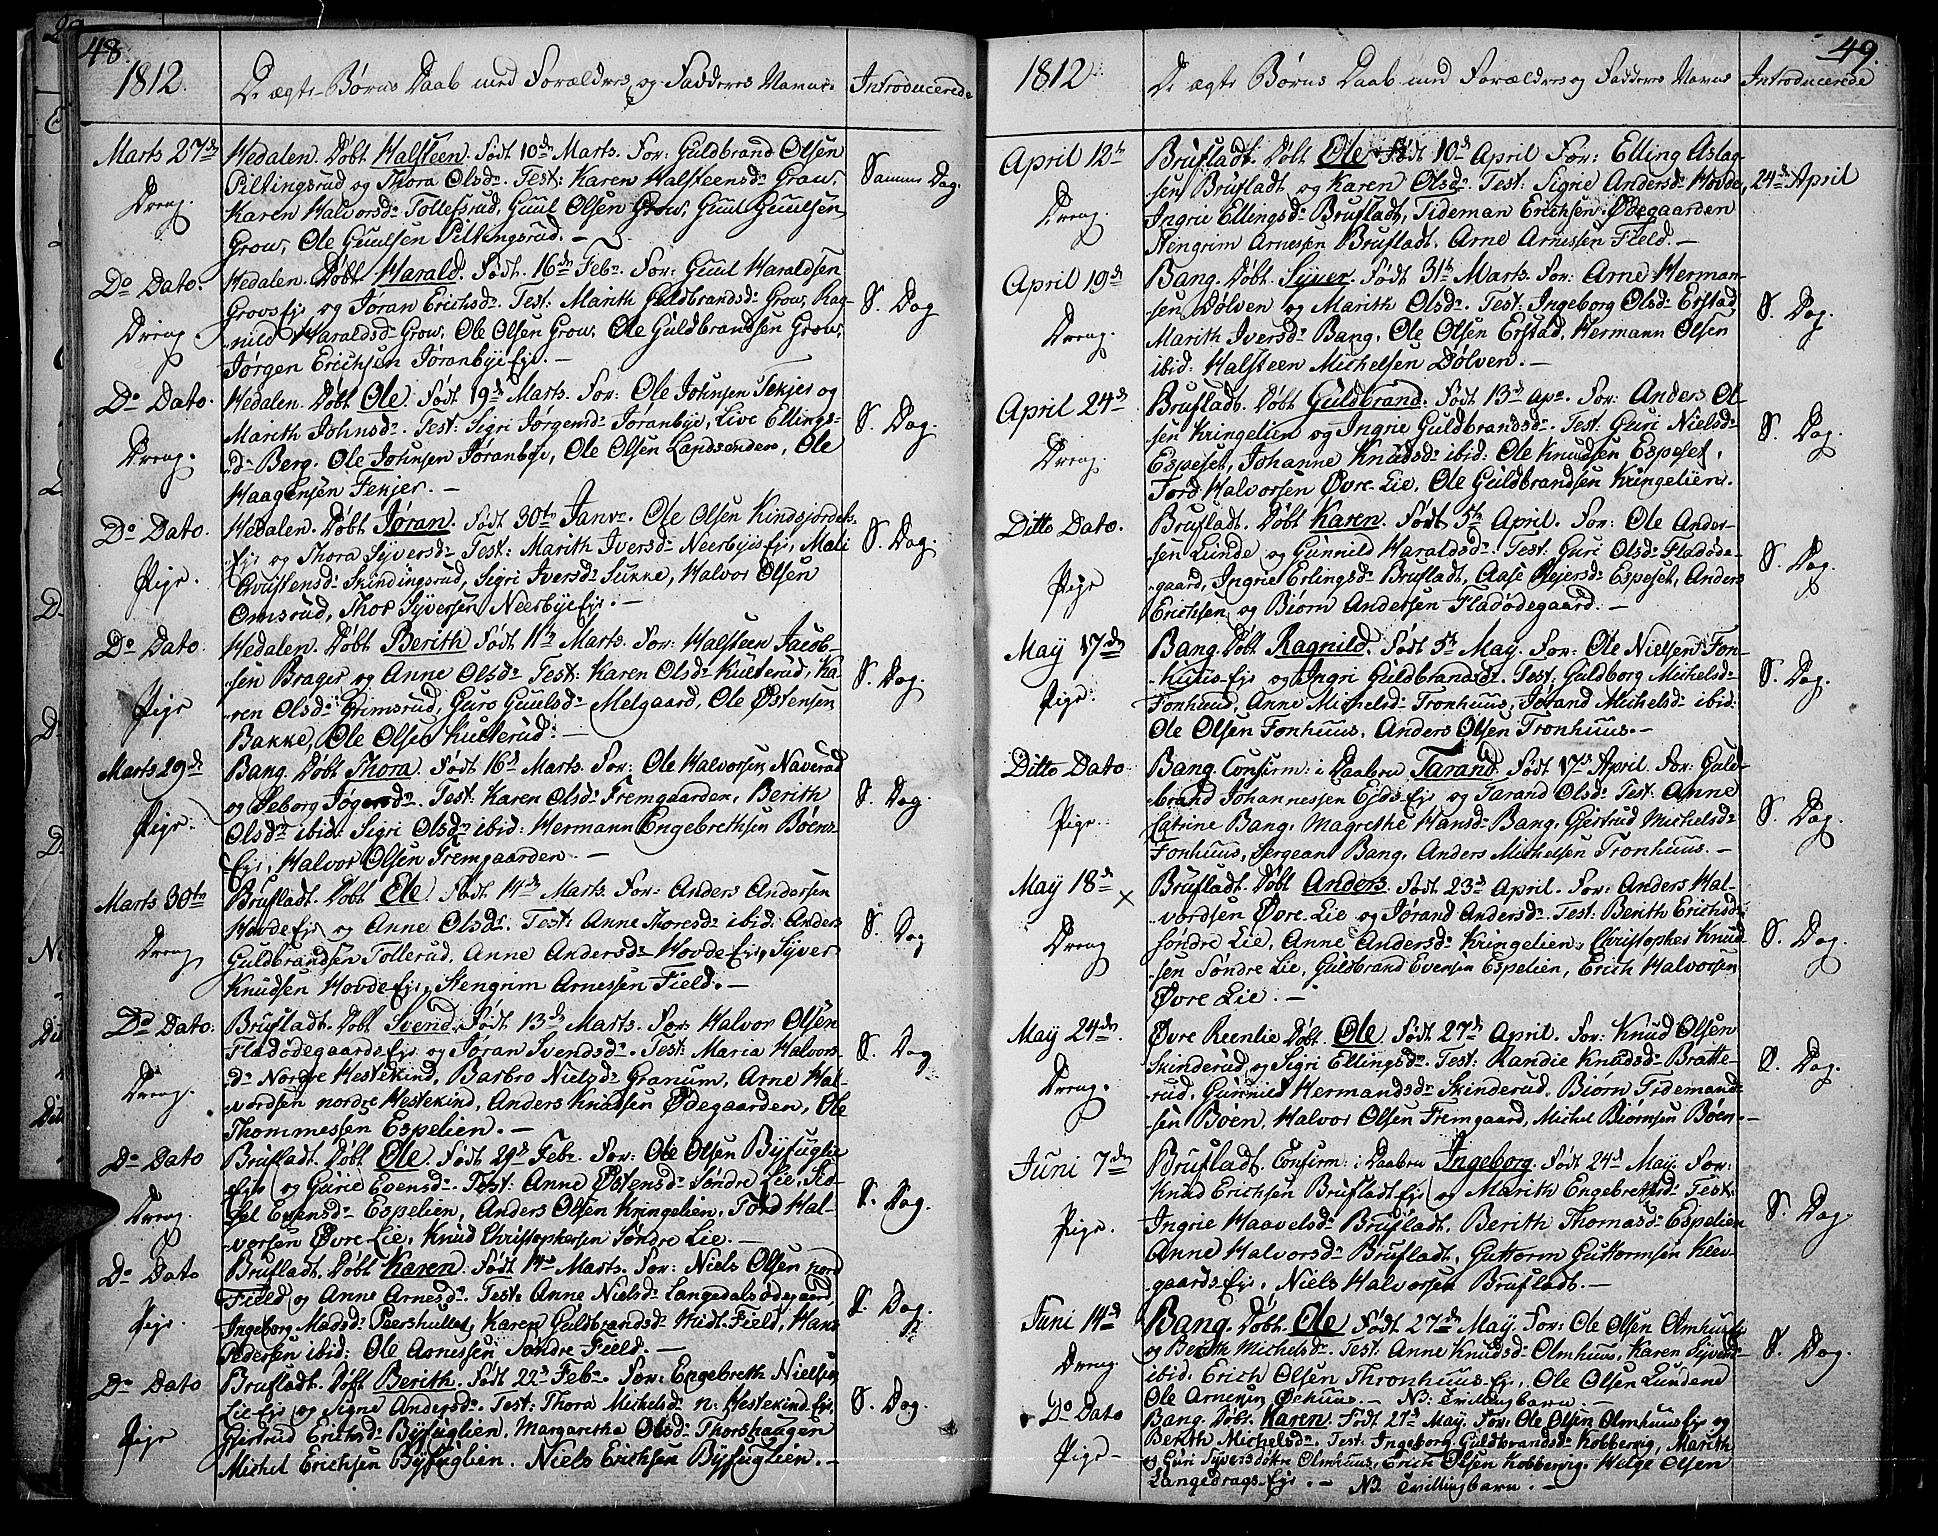 48.
1812. De ægte Børns Daab med Forældres og Fadderes Navne. Introducerede
Marts 27de Hedalen. Døbt Halsteen. Født 10de Marts. For: Guldbrand Olsen
Dreng. Piltingsrud og Thora Olsdr. Test: Karen Halsteensdr Grow, Samme Dag.
Karen Halvorsdr Tollefsrud, Guul Olsen Grow, Guul Guulsen
Grow, Ole Guulsen Piltingsrud. –
Do Dato. Hedalen. Døbt Harald. Født 16de Febr. For: Guul Haraldsen
Dreng Growsejr og Jøran Erichsdr. Test: Marith Guldbrandsdr Grow, Rag- S. Dag
nild Haraldsdr Grow, Ole Olsen Grow, Ole Guldbrandsen Grow,
Jørgen Erichsen Jøranbye Ejr. –
Do Dato. Hedalen. Døbt Ole. Født 19de Marts. For: Ole Johnsen Fekjer og
Dreng. Marith Johnsdr. Test: Sigri Jørgensdr Jøranbye, Live Ellings- S. Dag.
dr Berg. Ole Johnsen Jøranbye, Ole Olsen Landsenden, Ole
Haagensen Fekjer. –
Do Dato. Hedalen. Døbt Jøran. Født 30te Janr. Ole Olsen Kindsjordets-
Pige. Ejr og Thora Syversdr Test: Marith Iversdr Neerbyis Ejr, Mali S. Dag.
Christensdr Skindingsrud, Sigri Iversdr Sukke, Halvor Olsen
Omsrud, Thor Syversen Neerbye Ejr. –
Do Dato Hedalen. Døbt Berith. Født 11te Marts. For: Halsteen Jacob-
Pige sen Brager og Anne Olsdr Test: Karen Olsdr Kulterud, Ka- S. Dag.
ren Olsdr Grimsrud, Guro Guulsdr Melgaard, Ole Østensen
Bakke, Ole Olsen Kulterud. –
Marts 29de Bang. Døbt Thora. Født 16de Marts. For: Ole Halvorsen Naverud
Pige. og Seborg Jøgensdr. Test: Karen Olsdr Fremgaarden, Berith S. Dag.
Olsdr ibid: Sigri Olsdr ibid: Hermann Engebrethsen Bøens
Ejr, Halvor Olsen Fremgaarden. –
Marts 30te Brufladt. Døbt Ole. Født 14de Marts. For: Anders Andersen
Dreng Hovde Ejr og Anne Olsdr. Test: Anne Thoresdr ibid: Anders S. Dag
Guldbrandsen Tollerud, Anne Andersdr Hovde Ejr, Syver
Knudsen Hovde Ejr, Stengrim Arnessen Field. –
Do Dato: Brufladt. Døbt Svend. Født 13de Marts. For: Halvor Olsen
Dreng. Fladødegaards Ejr og Jøran Svendsdr. Test: Maria Halvors- S. Dag
dr Nordre Hestekind, Barbro Nielsdr Granum, Arne Hal-
vordsen nordre Hestekind, Anders Knudsen Ødegaarden, Ole
Thommessen Espelien. –
Do Dato Brufladt. Døbt Ole. Født 29de Febr. For: Ole Olsen Byfuglie
Dreng. Ejr og Gurie Evensdr. Test: Anne Østensdr Søndre Lie, S. Dag.
sel Evensdr Espelien, Anders Olsen Kringelien, Tord Hal-
vorsen Øvre Lie, Knud Christophersen Søndre Lie. –
Do Dato Brufladt. Døbt Karen. Født 14de Marts. For: Niels Olsen nord
Pige. Field og Anne Arnesdr. Test: Anne Nielsdr Langedalsødegaard, S. Dag.
Ingeborg Madsdr Peershullet, Karen Guldbrandsdr Midt Field, Hans
Pedersen ibid: Ole Arnessen Søndre Field. –
Do Dato Brufladt. Døbt Berith. Født 22de Febr. For: Engebreth Nielsen
Pige Lie Ejr og Signe Andersdr. Test: Thora Michelsdr n: Hestekind Ejr, S. Dag.
Giertrud Erichsdr Byfuglien, Margaretha Olsdr Thorshaugen
Michel Erichsen Byfuglien. Niels Erichsen Byfuglien. –
49.
1812 De ægte Børns Daab med Forældres og Fadderes Navne Introducerede
April 12te Brufladt. Døbt Ole. Født 10de April For: Elling Aslag-
Dreng. sen Brufladt og Karen Olsdr. Test: Sigrie Andersdr Hovde, 24de April
Ingrie Ellingsdr Brufladt, Tideman Erichsen Ødegaarden
Stengrim Arnessen Brufladt. Arne Arnessen Field. –
April 19de Bang. Døbt Syver. Født 31te Marts. For: Arne Herman-
Dreng. sen Dølven og Marith Olsdr. Test: Ingeborg Olsdr Erstad S. Dag.
Marith Iversdr Bang, Ole Olsen Erstad, Hermann Olsen
ibid: Halsteen Michelsen Dølven. –
April 24de Brufladt. Døbt Guldbrand. Født 13de Apr. For: Anders Ol-
Dreng. sen Kringelien og Ingrie Guldbrandsdr. Test: Guri Nielsdr S. Dag.
Espeset, Johanne Knudsdr ibid: Ole Knudsen Espeset,
Tord Halvorsen Øvre Lie, Ole Guldbrandsen Kringelien.
Ditto Dato. Brufladt. Døbt Karen. Født 5te April. For: Ole Ander-
Pige sen Lunde og Gunnild Haraldsdr. Test: Guri Olsdr Fladøde- S. Dag.
gaard, Ingrie Erlingsdr Brufladt, Aase Reiersdr Espeset, Anders
Erichsen og Biørn Andersen Fladødegaard. –
May 17de Bang. Døbt Ragnild. Født 5te May. For: Ole Nielsen Fon-
Pige. huus-Ejr og Ingri Guldbrandsdr. Test: Guldborg Michelsdr S. Dag.
Fonhuus, Anne Michelsdr Tronhuus, Jørand Michelsdr ibid:
Ole Olsen Fonhuus, Anders Olsen Tronhuus. –
Ditto Dato. Bang. Confirm: i Daaben Tarand. Født 17de April. For: Guld-
Pige. brand Johannessen Ejds-Ejr og Tarand Olsdr Test: Anne S. Dag.
Catrine Bang, Magrethe Hansdr Bang, Gjertrud Michelsdr
Fonhuus, Sergeant Bang, Anders Michelsen Tronhuus. –
May 18de × Brufladt. Døbt Anders. Født 23de April. For: Anders Hal-
Dreng vordsen Øvre Lie og Jørand Andersdr. Test: Berith Erichsdr S. Dag.
søndre Lie, Anne Andersdr Kringelien, Christopher Knud-
sen Søndre Lie, Guldbrand Evensen Espelien, Erich Halvorsen
Øvre Lie. –
May 24de. Øvre Reenlie Døbt Ole. Født 27de April. For: Knud Olsen
Dreng. Skinderud og Sigri Ellingsdr. Test: Randie Knudsdr Bratte- S. Dag.
rud, Gunnild Hermandsdr Skinderud, Biørn Tidemand-
sen Bøen, Halvor Olsen Fremgaard, Michel Biørnsen Bøen. –
Juni 7de Brufladt. Confirm: i Daaben Ingeborg. Født 24de May. For:
Pige. Knud Erichsen Brufladt Ejr og Marith Engebrethsdr Test: S. Dag.
Ingrie Haavelsdr Brufladt. Berith Thomasdr Espelien
Anne Halvorsdr Brufladt, Guttorm Guttormsen Klev-
gaards-Ejr, Niels Halvorsen Brufladt. –
Juni 14de Bang. Døbt Ole Født 27de May. For: Ole Olsen Olmhuus Ejr
Dreng. og Berith Michelsdr. Test: Anne Knudsdr Olmhuus, Karen Syversdr S. Dag.
ibid: Erich Olsen Thronhuus Ejr, Ole Olsen Lundene
Ole Arnesen – NB: Tvillingbarn. –
Do Dato Bang. Døbt Karen. Født 27de May. For: Ole Olsen Olmhuus Ejr og
Pige – Berith Michelsdr. Test: Ingeborg Guldbrandsdr Kobbervig, Marith
og Guri Syversdøtre Olmhuus, Erich Olsen Kobbervig. Helge Olsen
Langedrags-Ejr. – NB. Tvillingbarn. –